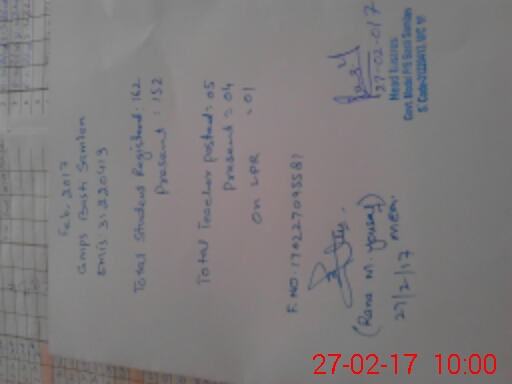 Feb. 2017
GMPS Basti Semian
EMIS 31220413
Total Student Registerd: 162
Present : 152
Total Teacher posted: 05
Present = 04
On LPR = 01
F. NO: 17022709558
(Rana M. Yousaf)
MEA.
27/2/17
27-02-017
27-02-17 10:00